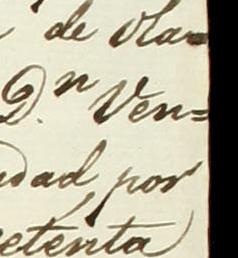 de ola=
D.n Ven=
dad por
setenta